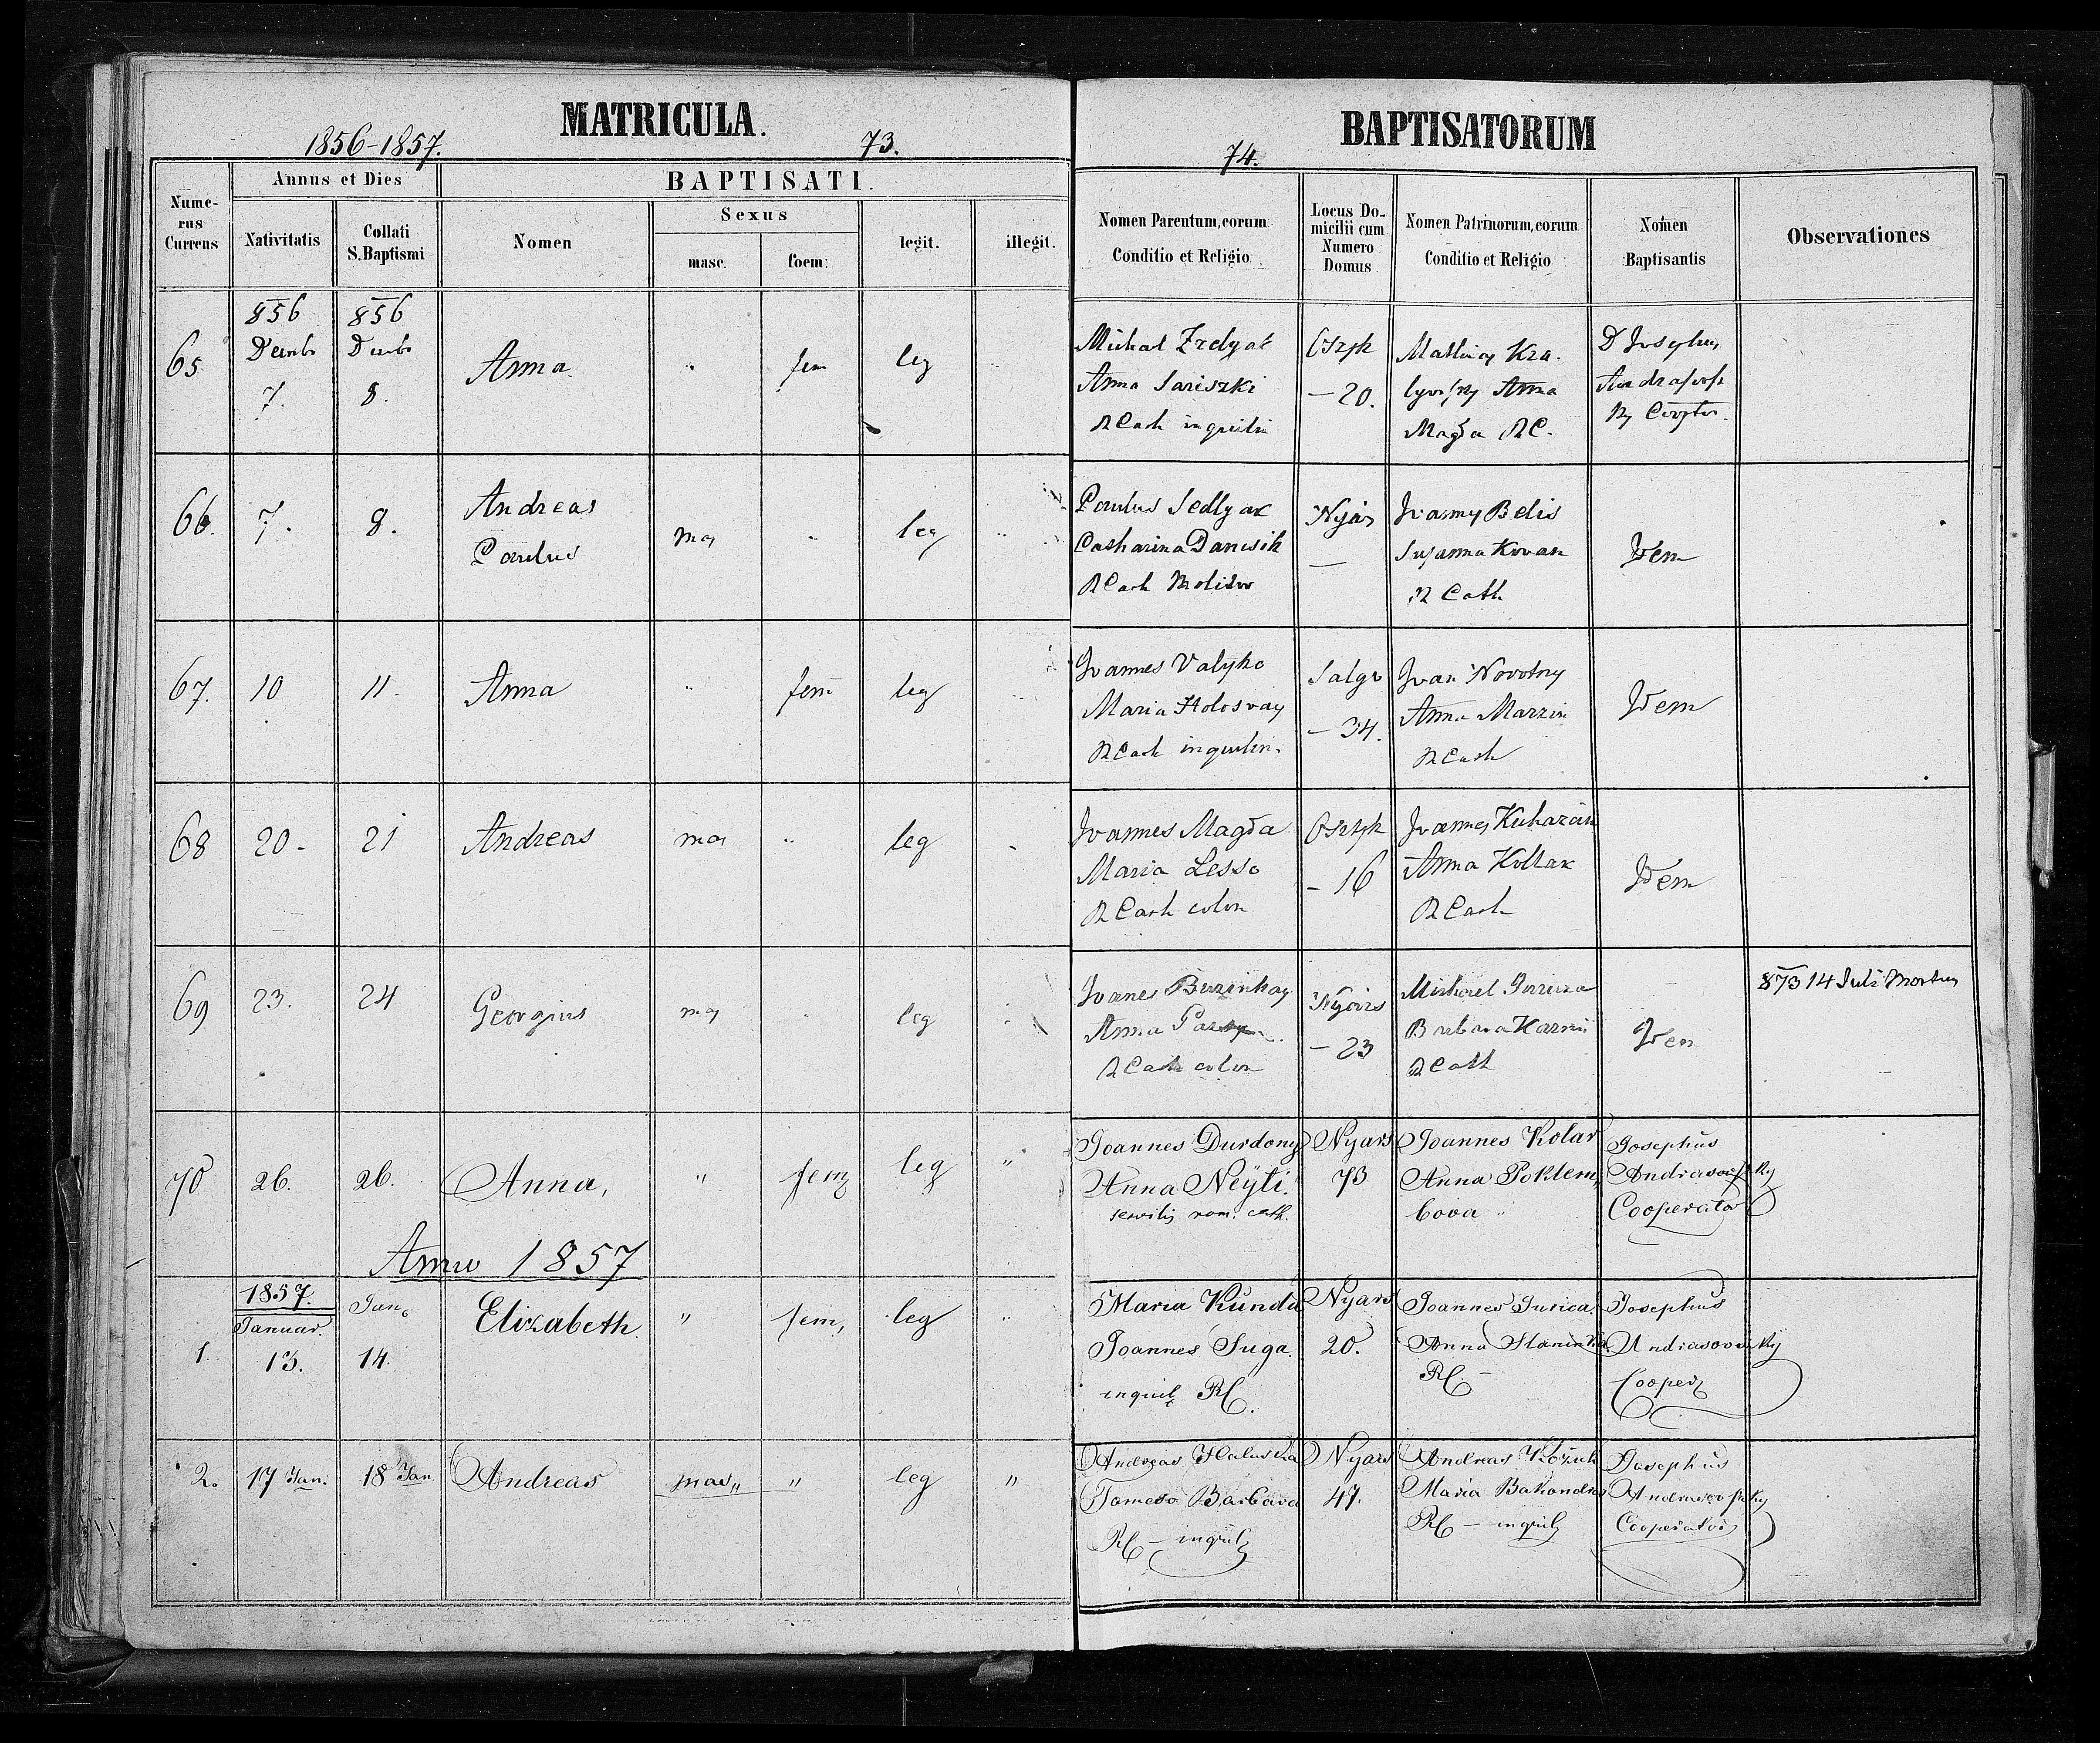 MATRICULA.
1856-1857.
73.
Numerus Currens
Annus et Dies
Nativitatis
Collati S. Baptismi
BAPTISATI.
Nomen
Sexus
masc.
foem:
legit.
illegit.
BAPTISATORUM
74.
Nomen Parentum, eorum
Conditio et Religio
Locus Do-
micilii cum
Numero
Domus
Nomen Patrinorum, eorum
Conditio et Religio
Nomen
Baptisantis
Observationes
65
856
7.
856
8.
Anna
fem
leg
Michal
Anna Sariszki
R Cath inquilin
— 20.
Anna
Magda RC.
D Josephus
66.
7.
8.
Andreas
Paulus
mas
leg
Paulus Sedlyak
Catharina Dancsik
R Cath Molitor
Nyárs
—
Joannes Belis
Susanna Kovan
R Cath
Idem
67.
10
11.
Anna
fem
leg
Joannes Valyko
Maria Holosvay
R Cath inquilin.
Salgo
— 34.
Joan Novotny
Anna
R Cath
Idem
68
20.
21
Andreas
mas
leg
Joannes Magda
Maria Lesso
R Cath colon
— 16
Joannes
Anna Kollar
R Cath
Idem
69
23.
24
Georgius
mas
leg
Joanes
Anna
R Cath colon
Nyárs
— 23
Michael
Barbara
R Cath
Idem
873 14 Juli Mortuus
70
26.
26.
Anna,
"
fem
leg
"
Joannes Durdony
Anna Neyti.
servilis rom. cath.
Nyars
73
Joannes Kolar
Anna Poklem,
bova
Josephus
Andrasofsky
Cooperator
Anno 1857
1.
1857.
Januar.
13.
Jan.
14.
Elizabeth
"
fem,
leg
"
Maria Kunda
Joannes Suga.
inquil. RC.
Nyars
20.
Joannes Jurica.
Anna
RC. —
Josephus
Andrasovsky
Cooper
2.
17 Jan.
18 Jan.
Andreas
mas,,
"
leg
"
Andreas Haluska
Barbara
RC — inquil
Nyars
47.
Andreas
Maria
RC — inquil
Josephus
Andrasofsky
Cooperator